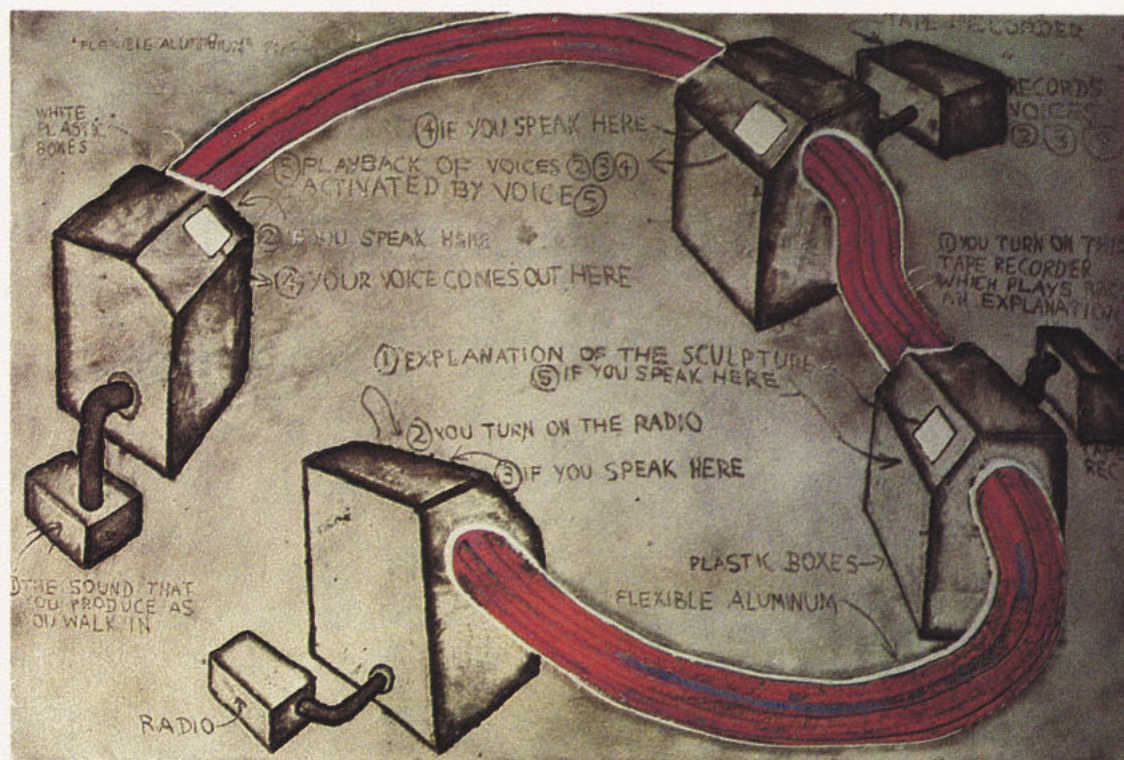 "FLEXIBLE ALUMINUM"
WHITE
PLASTIC
BOXES
TAPE RECORDER
RECORDS
VOICES
② ③
④ IF YOU SPEAK HERE
⑤ PLAYBACK OF VOICES ② ③ ④
ACTIVATED BY VOICE ⑤
② IF YOU SPEAK HERE
④ YOUR VOICE COMES OUT HERE
① YOU TURN ON THIS
TAPE RECORDER
WHICH PLAYS
AN EXPLANATION
① EXPLANATION OF THE SCULPTURE
⑤ IF YOU SPEAK HERE
② YOU TURN ON THE RADIO
③ IF YOU SPEAK HERE
REC
PLASTIC BOXES
FLEXIBLE ALUMINUM
THE SOUND THAT
YOU PRODUCE AS
YOU WALK IN
RADIO